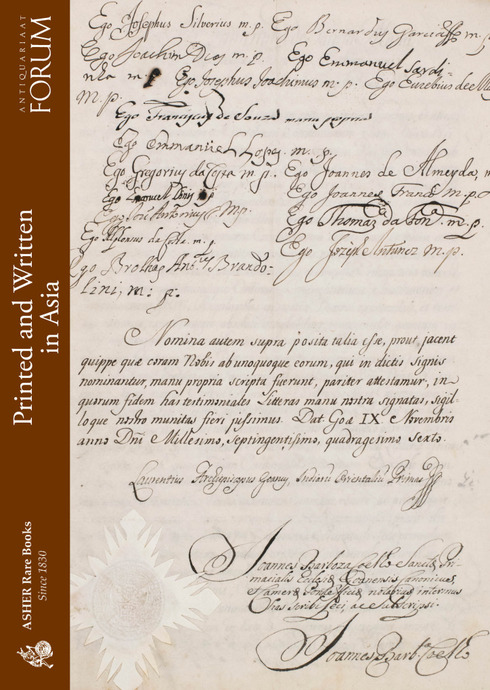 ANTIQUARIAAT
FORUM
Printed and Written
in Asia
ASHER Rare Books
Since 1830
Ego Josephus Silverius m. p. Ego Bernardus
Ego Joachim Dias m. p. Ego Emmanuel Sardi-
nla m p Ego Josephus Joachimus m. p. Ego Eusebius de
M. p.
Ego Franciscus de Souza manu propria
Ego Emmanuel Lopez m. p.
Ego Gregorius da Costa m p. Ego Joannes de Almeyda, m
Ego Emanuel Dinis p Ego Joannes Franco m. p.
Antonius Mp. Ego Thomaz da m. p.
Ego da m. p. Ego Joseph Antunez m. p.
go Brolhas Brando-
lini, m: p.
Nomina autem supra posita talia esse, prout, jacent
quippe quæ coram Nobis ab unoquoque eorum, qui in dictis signis
nominantur, manu propria scripta fuerunt, pariter attestamur, in
quorum fidem has testimoniales litteras manu nostra signatas, sigil-
loque nostro munitas fieri jussimus. Dat Goæ IX Novembris
anno Dñi Millesimo, septingentisimo, quadragesimo sexto.
Laurentius Archiepiscopus Goanus, Indiarũ Orientaliũ Primas
Joannes Barboza Coelho Sanctæ Pri-
macialis Goanensis canonicus,
notarius
ac subscripsi.
Joannes Barb. Coelho